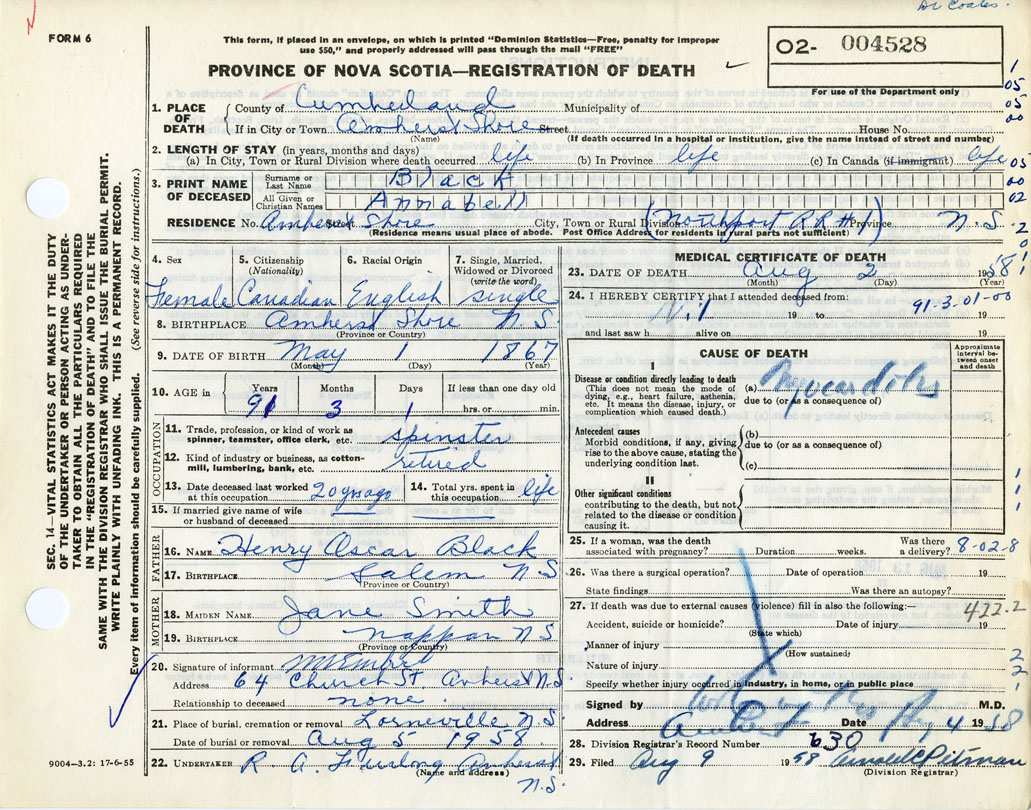 Dr Coates.
FORM 6
This form, if placed in an envelope, on which is printed "Dominion Statistics—Free, penalty for improper
use $50," and properly addressed will pass through the mail "FREE"
O2- 004528
For use of the Department only
PROVINCE OF NOVA SCOTIA—REGISTRATION OF DEATH
SEC. 14—VITAL STATISTICS ACT MAKES IT THE DUTY
OF THE UNDERTAKER OR PERSON ACTING AS UNDER-
TAKER TO OBTAIN ALL THE PARTICULARS REQUIRED
IN THE "REGISTRATION OF DEATH" AND TO FILE THE
SAME WITH THE DIVISION REGISTRAR WHO SHALL ISSUE THE BURIAL PERMIT.
WRITE PLAINLY WITH UNFADING INK. THIS IS A PERMANENT RECORD.
Every item of information should be carefully supplied. (See reverse side for instructions.)
1. PLACE OF DEATH County of Cumberland Municipality of
If in City or Town Amherst Shore Street House No.
(Name) (If death occurred in a hospital or institution, give the name instead of street and number)
2. LENGTH OF STAY (in years, months and days)
(a) In City, Town or Rural Division where death occurred life (b) In Province life (c) In Canada (if immigrant) life
3. PRINT NAME OF DECEASED Surname or Last Name Black
All Given or Christian Names Annabell
RESIDENCE No. Amherst Shore Street City, Town or Rural Division (Northport RR #1) Province N.S
(Residence means usual place of abode. Post Office Address for residents in rural parts not sufficient)
4. Sex Female
5. Citizenship (Nationality) Canadian
6. Racial Origin English
7. Single, Married, Widowed or Divorced (write the word) single
8. BIRTHPLACE Amherst Shore N.S.
(Province or Country)
9. DATE OF BIRTH May 1 1867
(Month) (Day) (Year)
10. AGE in Years 91 Months 3 Days 1 If less than one day old hrs. or min.
OCCUPATION
11. Trade, profession, or kind of work as spinner, teamster, office clerk, etc. spinster
12. Kind of industry or business, as cotton-mill, lumbering, bank, etc. retired
13. Date deceased last worked at this occupation 20 yrs ago 14. Total yrs. spent in this occupation life
15. If married give name of wife or husband of deceased
FATHER
16. NAME Henry Oscar Black
17. BIRTHPLACE Salem N S
(Province or Country)
MOTHER
18. MAIDEN NAME Jane Smith
19. BIRTHPLACE Nappan N S
(Province or Country)
20. Signature of informant
Address 64 Church St Amherst N.S.
Relationship to deceased none
21. Place of burial, cremation or removal Lorneville N.S.
Date of burial or removal Aug 5 1958
22. UNDERTAKER R. A. Furlong Amherst
(Name and address) N.S.
9004—3.2: 17-6-55
MEDICAL CERTIFICATE OF DEATH
23. DATE OF DEATH Aug 2 1958
(Month) (Day) (Year)
24. I HEREBY CERTIFY that I attended deceased from:
Nil 19 to 19
91-3.01-00
and last saw h alive on 19
CAUSE OF DEATH
Approximate interval between onset and death
I
Disease or condition directly leading to death
(This does not mean the mode of dying, e.g., heart failure, asthenia, etc. It means the disease, injury, or complication which caused death.)
(a) Myocarditis
due to (or as a consequence of)
Antecedent causes
Morbid conditions, if any, giving rise to the above cause, stating the underlying condition last.
(b)
due to (or as a consequence of)
(c)
II
Other significant conditions
contributing to the death, but not related to the disease or condition causing it.
25. If a woman, was the death associated with pregnancy? Duration weeks. Was there a delivery? 8-02-8
26. Was there a surgical operation? Date of operation 19
State findings Was there an autopsy?
27. If death was due to external causes (violence) fill in also the following:—
422.2
Accident, suicide or homicide? Date of injury 19
(State which)
Manner of injury
(How sustained)
Nature of injury
Specify whether injury occurred in industry, in home, or in public place
Signed by M.D.
Address Amherst Date Aug 4 1958
28. Division Registrar's Record Number 630
29. Filed Aug 9 1958 Arnold C Pitman
(Division Registrar)